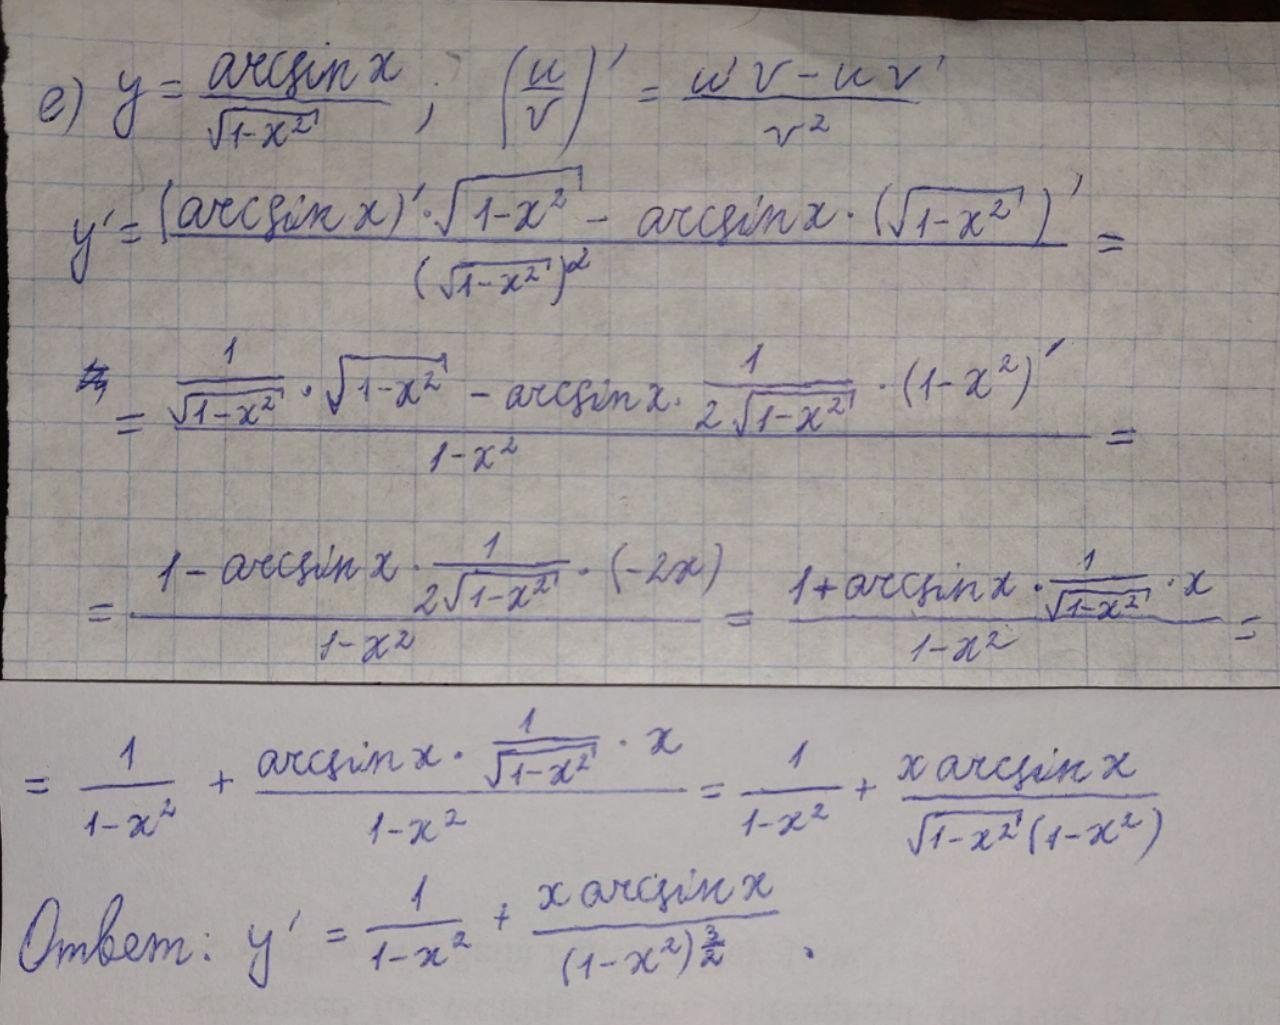 е) y = arcsin x / √(1-x²) ; (u/v)' = (u'v - uv') / v²
y' = ((arcsin x)' · √(1-x²) - arcsin x · (√(1-x²))') / (√(1-x²))² =
= (1/√(1-x²) · √(1-x²) - arcsin x · 1/(2√(1-x²)) · (1-x²)') / (1-x²) =
= (1 - arcsin x · 1/(2√(1-x²)) · (-2x)) / (1-x²) = (1 + arcsin x · 1/√(1-x²) · x) / (1-x²) =
= 1/(1-x²) + (arcsin x · 1/√(1-x²) · x) / (1-x²) = 1/(1-x²) + x arcsin x / (√(1-x²) (1-x²))
Ответ: y' = 1/(1-x²) + x arcsin x / (1-x²)^(3/2) .